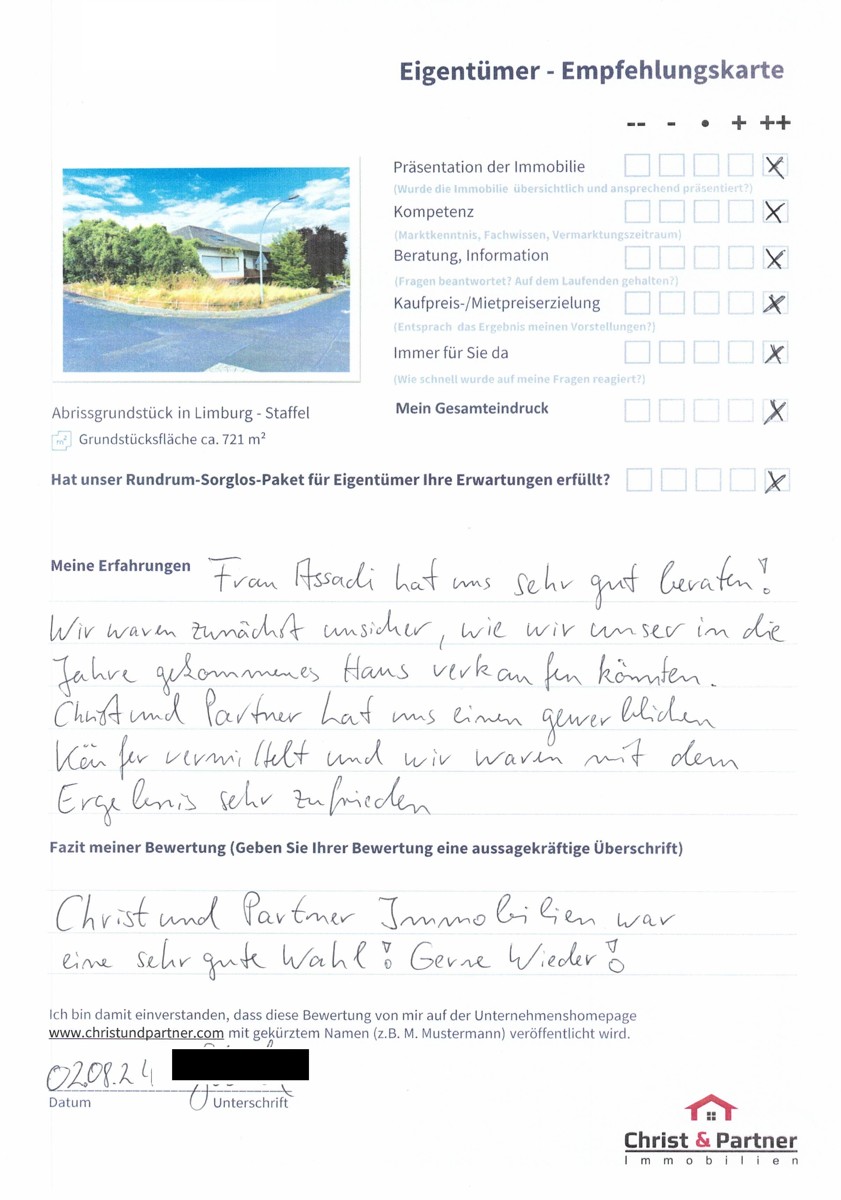 Eigentümer - Empfehlungskarte
-- - • + ++
Präsentation der Immobilie
(Wurde die Immobilie übersichtlich und ansprechend präsentiert?)
Kompetenz
(Marktkenntnis, Fachwissen, Vermarktungszeitraum)
Beratung, Information
(Fragen beantwortet? Auf dem Laufenden gehalten?)
Kaufpreis-/Mietpreiserzielung
(Entsprach das Ergebnis meinen Vorstellungen?)
Immer für Sie da
(Wie schnell wurde auf meine Fragen reagiert?)
Mein Gesamteindruck
Abrissgrundstück in Limburg - Staffel
m² Grundstücksfläche ca. 721 m²
Hat unser Rundrum-Sorglos-Paket für Eigentümer Ihre Erwartungen erfüllt?
Meine Erfahrungen Frau Assadi hat uns sehr gut beraten!
Wir waren zunächst unsicher, wie wir unser in die
Jahre gekommenes Haus verkaufen könnten.
Christ und Partner hat uns einen gewerblichen
Käufer vermittelt und wir waren mit dem
Ergebnis sehr zufrieden
Fazit meiner Bewertung (Geben Sie Ihrer Bewertung eine aussagekräftige Überschrift)
Christ und Partner Immobilien war
eine sehr gute Wahl! Gerne Wieder!
Ich bin damit einverstanden, dass diese Bewertung von mir auf der Unternehmenshomepage
www.christundpartner.com mit gekürztem Namen (z.B. M. Mustermann) veröffentlicht wird.
02.08.24
Datum Unterschrift
Christ & Partner
Immobilien